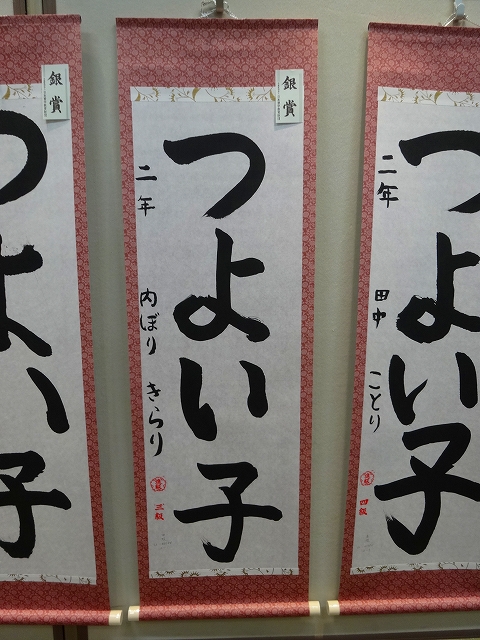 銀賞
つよい子
二年
田中
ことり
四級
銀賞
つよい子
二年
内ぼり
きらり
三級
銀賞
つよい子